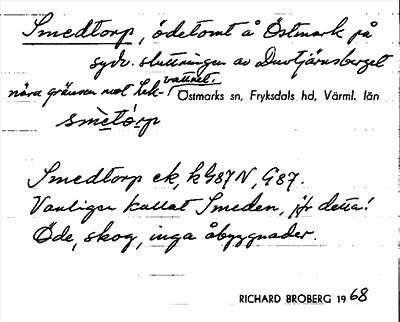 Smedtorp, ödetomt å Östmark på
sydv. sluttningen av Duvtjärnsberget
nära gränsen mot Lek-
vattnet.
Östmarks sn, Fryksdals hd, Värml. län
smètórp
Smedtorp ek, kG87N, G87.
Vanligen kallat Smeden, jfr detta!
Öde, skog, inga åbyggnader.
RICHARD BROBERG 1968